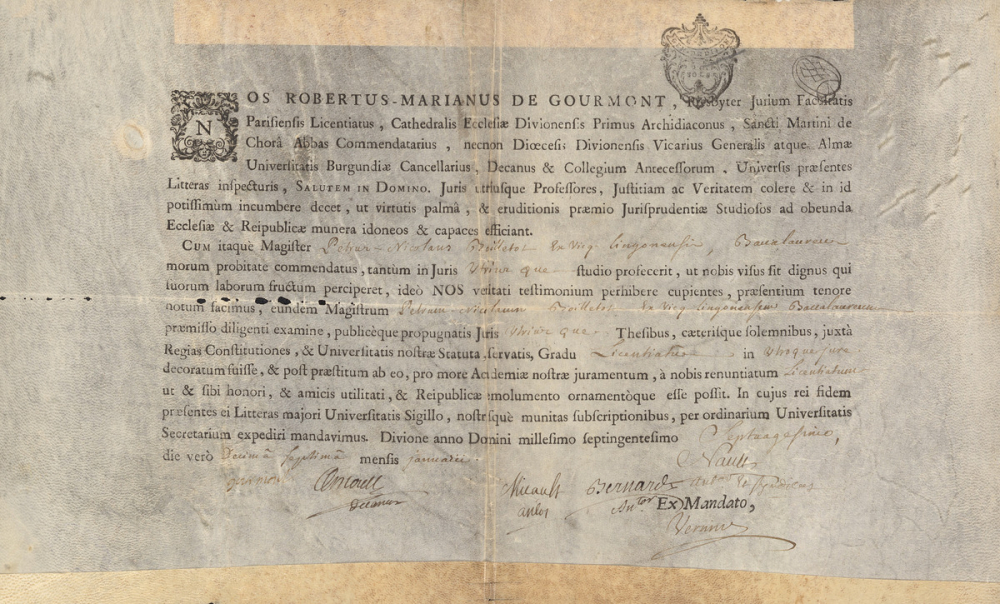 NOS ROBERTUS-MARIANUS DE GOURMONT, Presbyter Jurium Facultatis
Parisiensis Licentiatus, Cathedralis Ecclesiæ Divionensis Primus Archidiaconus, Sancti Martini de
Chorâ Abbas Commendatarius, necnon Diœcesis Divionensis Vicarius Generalis atque Almæ
Universitatis Burgundiæ Cancellarius, Decanus & Collegium Antecessorum, Universis præsentes
Litteras inspecturis, SALUTEM IN DOMINO. Juris utriusque Professores, Justitiam ac Veritatem colere & in id
potissimùm incumbere decet, ut virtutis palmâ, & eruditionis præmio Jurisprudentiæ Studiosos ad obeunda
Ecclesiæ & Reipublicæ munera idoneos & capaces efficiant.
CUM itaque Magister Petrus-Nicolaus ex Lingonensis, Baccalaureus
morum probitate commendatus, tantùm in Juris utrius que studio profecerit, ut nobis visus sit dignus qui
suorum laborum fructum perciperet, ideò NOS veritati testimonium perhibere cupientes, præsentium tenore
notum facimus, eundem Magistrum Petrum-Nicolaum ex Lingonensis Baccalaureum
præmisso diligenti examine, publicèque propugnatis Juris utrius que Thesibus, cæterisque solemnibus, juxtà
Regias Constitutiones, & Universitatis nostræ Statuta servatis, Gradu Licentiatûs in utroque jure
decoratum fuisse, & post præstitum ab eo, pro more Academiæ nostræ juramentum, à nobis renuntiatum Licentiatum
ut & sibi honori, & amicis utilitati, & Reipublicæ emolumento ornamentoque esse possit. In cujus rei fidem
præsentes ei Litteras majori Universitatis Sigillo, nostrisquè munitas subscriptionibus, per ordinarium Universitatis
Secretarium expediri mandavimus. Divione anno Domini millesimo septingentesimo Septuagesimo,
die verò Decimâ septimâ mensis januarii.
Nault
Arnoult Micault Bernard
Decanus Antor
Ex Mandato,